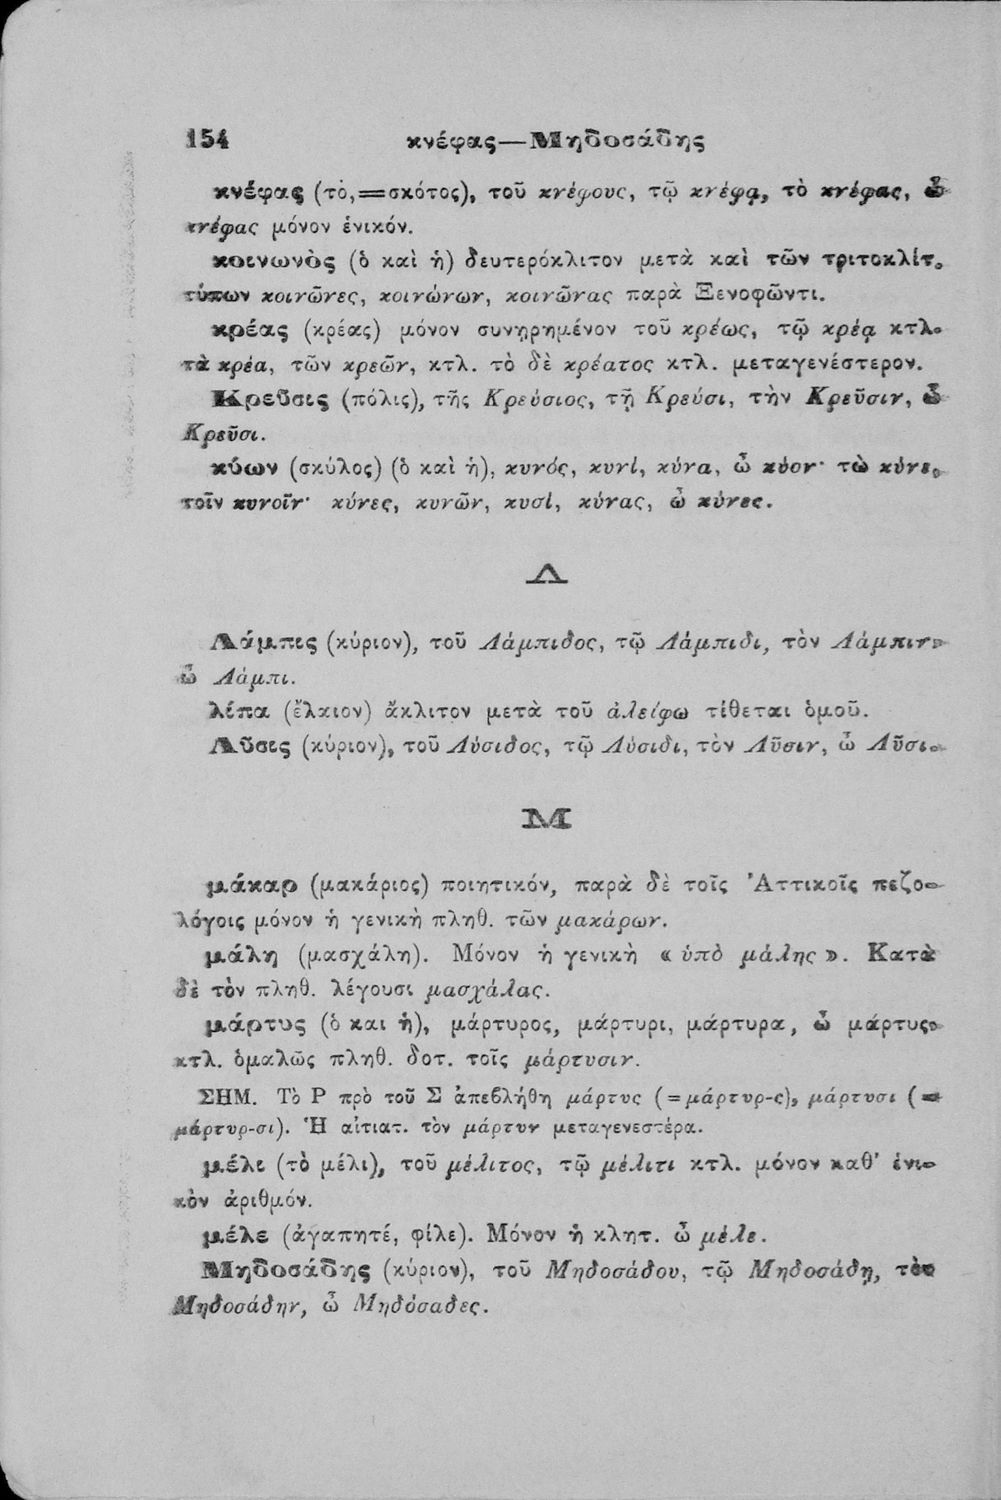 154 κνέφας—Μηδοσάδης
κνέφας (τὸ,=σκότος), τοῦ κνέφους, τῷ κνέφᾳ, τὸ κνέφας, ὦ
κνέφας μόνον ἑνικόν.
κοινωνὸς (ὁ καὶ ἡ) δευτερόκλιτον μετὰ καὶ τῶν τριτοκλίτ.
τύπων κοινῶνες, κοινώνων, κοινῶνας παρὰ Ξενοφῶντι.
κρέας (κρέας) μόνον συνῃρημένον τοῦ κρέως, τῷ κρέᾳ κτλ.
τὰ κρέα, τῶν κρεῶν, κτλ. τὸ δὲ κρέατος κτλ. μεταγενέστερον.
Κρεῦσις (πόλις), τῆς Κρεύσιος, τῇ Κρεύσι, τὴν Κρεῦσιν, ὦ
Κρεῦσι.
κύων (σκύλος) (ὁ καὶ ἡ), κυνός, κυνί, κύνα, ὦ κύον· τὼ κύνε,
τοῖν κυνοῖν· κύνες, κυνῶν, κυσί, κύνας, ὦ κύνες.
Λ
Λάμπις (κύριον), τοῦ Λάμπιδος, τῷ Λάμπιδι, τὸν Λάμπιν,
ὦ Λάμπι.
λίπα (ἔλαιον) ἄκλιτον μετὰ τοῦ ἀλείφω τίθεται ὁμοῦ.
Λῦσις (κύριον), τοῦ Λύσιδος, τῷ Λύσιδι, τὸν Λῦσιν, ὦ Λῦσι.
Μ
μάκαρ (μακάριος) ποιητικόν, παρὰ δὲ τοῖς Ἀττικοῖς πεζο-
λόγοις μόνον ἡ γενικὴ πληθ. τῶν μακάρων.
μάλη (μασχάλη). Μόνον ἡ γενικὴ «ὑπὸ μάλης». Κατὰ
δὲ τὸν πληθ. λέγουσι μασχάλας.
μάρτυς (ὁ και ἡ), μάρτυρος, μάρτυρι, μάρτυρα, ὦ μάρτυς.
κτλ. ὁμαλῶς πληθ. δοτ. τοῖς μάρτυσιν.
ΣΗΜ. Τὸ Ρ πρὸ τοῦ Σ ἀπεβλήθη μάρτυς (=μάρτυρ-ς), μάρτυσι (=
μάρτυρ-σι). Ἡ αἰτιατ. τὸν μάρτυν μεταγενεστέρα.
μέλι (τὸ μέλι), τοῦ μέλιτος, τῷ μέλιτι κτλ. μόνον καθ' ἑνι-
κὸν ἀριθμόν.
μέλε (ἀγαπητέ, φίλε). Μόνον ἡ κλητ. ὦ μέλε.
Μηδοσάδης (κύριον), τοῦ Μηδοσάδου, τῷ Μηδοσάδῃ, τὸν
Μηδοσάδην, ὦ Μηδόσαδες.